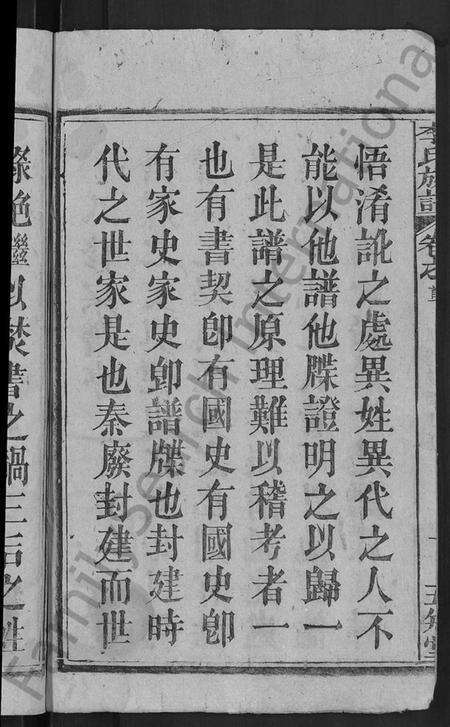 李氏族譜
卷之首
悟淆訛之處異姓異代之人不
能以他譜他牒證明之以歸一
是此譜之原理難以稽考者一
也有書契卽有國史有國史卽
有家史家史卽譜牒也封建時
代之世家是也秦廢封建而世
祿絶繼以焚書之禍三后之姓
FamilySearch International